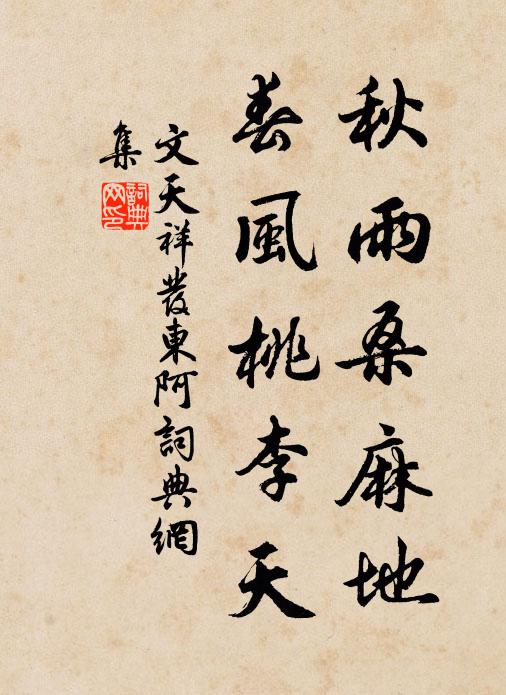 秋雨桑麻地
春風桃李天
文天祥發東阿詞典網
集
詞典
网印